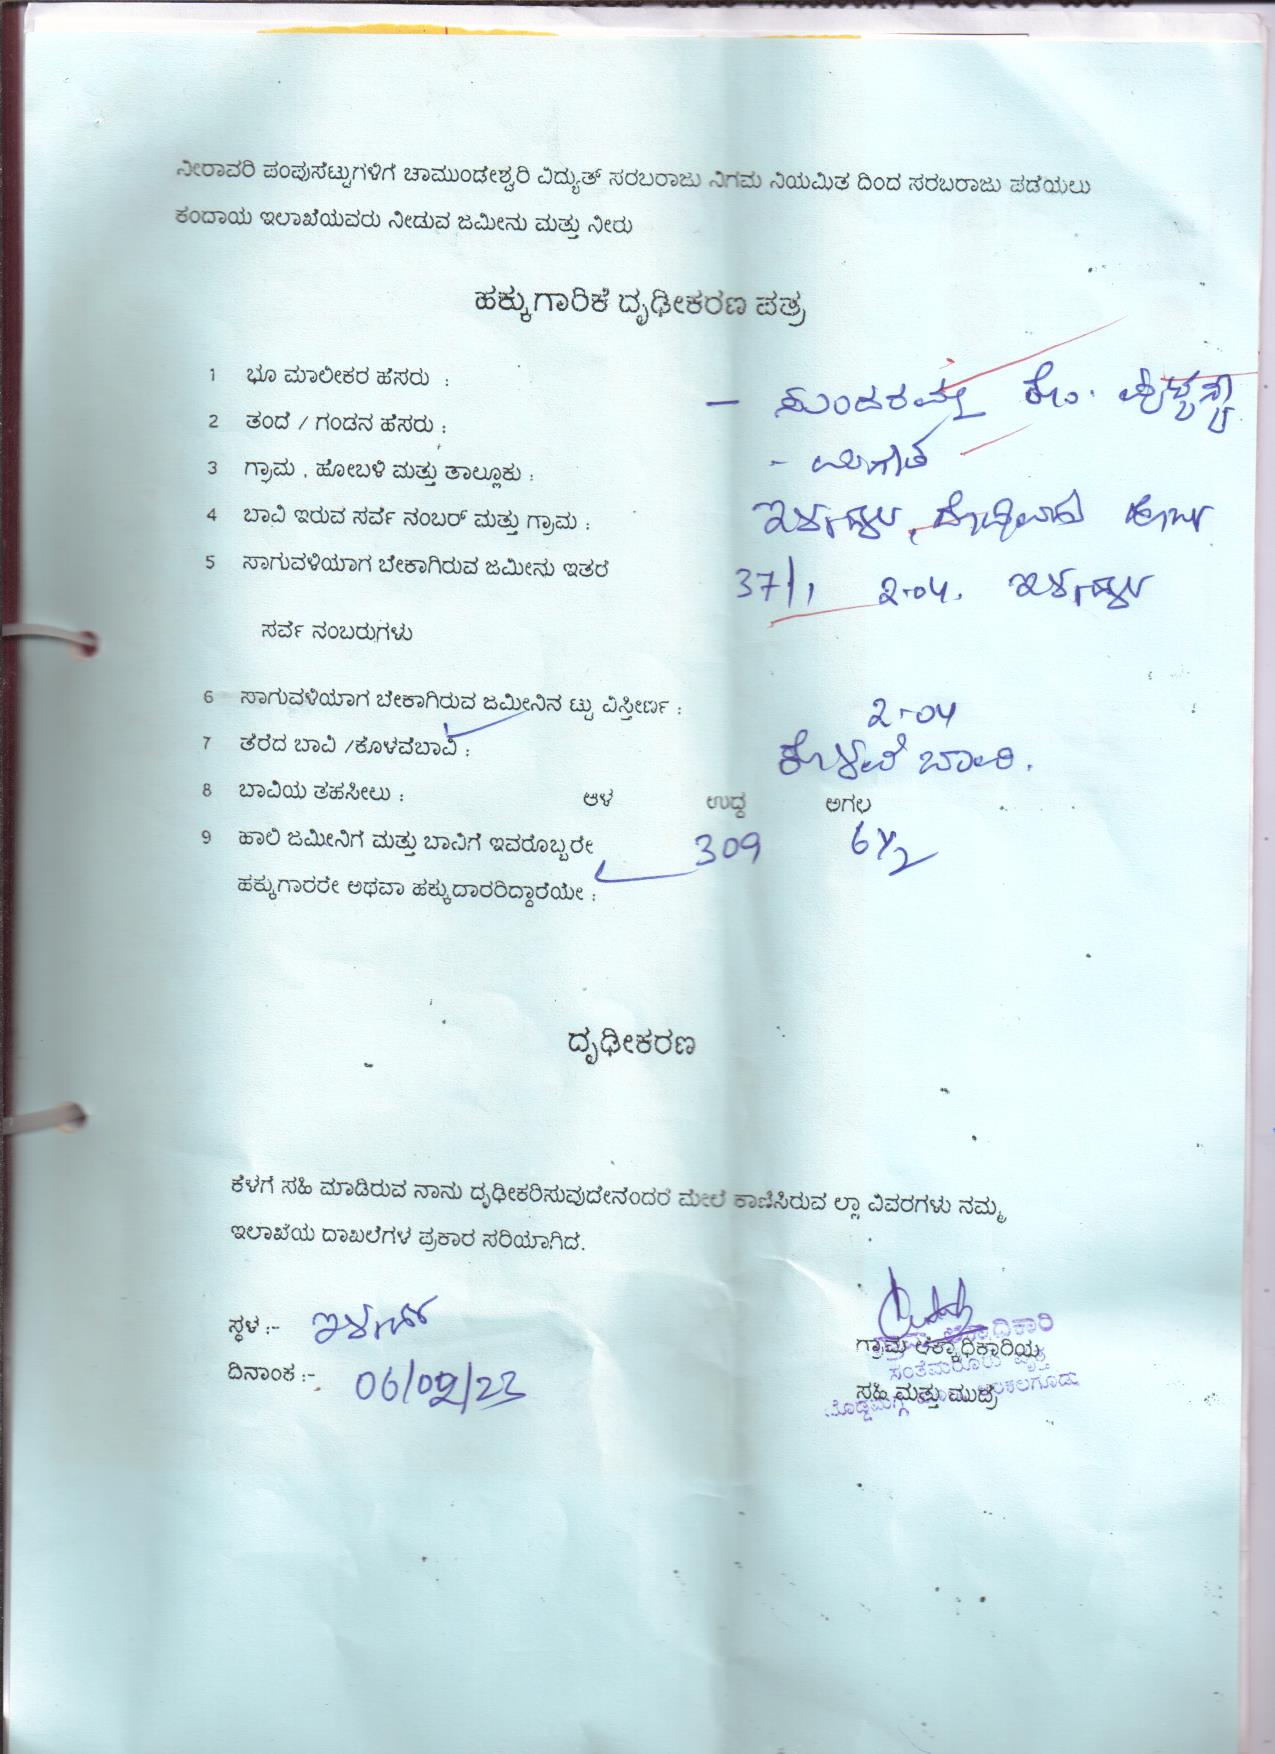 ನೀರಾವರಿ ಪಂಪುಸೆಟ್ಟುಗಳಿಗೆ ಚಾಮುಂಡೇಶ್ವರಿ ವಿದ್ಯುತ್ ಸರಬರಾಜು ನಿಗಮ ನಿಯಮಿತ ದಿಂದ ಸರಬರಾಜು ಪಡೆಯಲು
ಕಂದಾಯ ಇಲಾಖೆಯವರು ನೀಡುವ ಜಮೀನು ಮತ್ತು ನೀರು
ಹಕ್ಕುಗಾರಿಕೆ ದೃಢೀಕರಣ ಪತ್ರ
1 ಭೂ ಮಾಲೀಕರ ಹೆಸರು :
- ಸುಂದರಮ್ಮ ಕೋಂ.
2 ತಂದೆ / ಗಂಡನ ಹೆಸರು :
3 ಗ್ರಾಮ , ಹೋಬಳಿ ಮತ್ತು ತಾಲ್ಲೂಕು :
4 ಬಾವಿ ಇರುವ ಸರ್ವೆ ನಂಬರ್ ಮತ್ತು ಗ್ರಾಮ :
5 ಸಾಗುವಳಿಯಾಗ ಬೇಕಾಗಿರುವ ಜಮೀನು ಇತರೆ
37/1 2-04.
ಸರ್ವೆ ನಂಬರುಗಳು
6 ಸಾಗುವಳಿಯಾಗ ಬೇಕಾಗಿರುವ ಜಮೀನಿನ ಟ್ಟು ವಿಸ್ತೀರ್ಣ : 2-04
7 ತೆರೆದ ಬಾವಿ /ಕೊಳವೆಬಾವಿ : ಕೊಳವೆ ಬಾವಿ.
8 ಬಾವಿಯ ತಹಸೀಲು : ಆಳ ಉದ್ದ ಅಗಲ
9 ಹಾಲಿ ಜಮೀನಿಗೆ ಮತ್ತು ಬಾವಿಗೆ ಇವರೊಬ್ಬರೇ 309 6½
ಹಕ್ಕುಗಾರರೇ ಅಥವಾ ಹಕ್ಕುದಾರರಿದ್ದಾರೆಯೇ :
ದೃಢೀಕರಣ
ಕೆಳಗೆ ಸಹಿ ಮಾಡಿರುವ ನಾನು ದೃಢೀಕರಿಸುವುದೇನೆಂದರೆ ಮೇಲೆ ಕಾಣಿಸಿರುವ ಲ್ಲಾ ವಿವರಗಳು ನಮ್ಮ
ಇಲಾಖೆಯ ದಾಖಲೆಗಳ ಪ್ರಕಾರ ಸರಿಯಾಗಿದೆ.
ಸ್ಥಳ :-
ಗ್ರಾಮ ಲೆಕ್ಕಾಧಿಕಾರಿಯ
ದಿನಾಂಕ :- 06/02/23
ಸಹಿ ಮತ್ತು ಮುದ್ರೆ